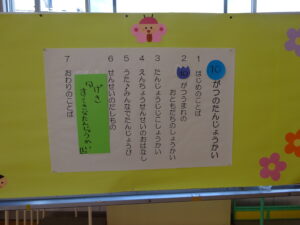 10がつのたんじょうかい
1 はじめのことば
2 10がつうまれの
おともだちのしょうかい
3 たんじょうじしょうかい
4 えんちょうせんせいのおはなし
5 うた♪みんなでたんじょうび
6 せんせいのだしもの
げき
7 おわりのことば